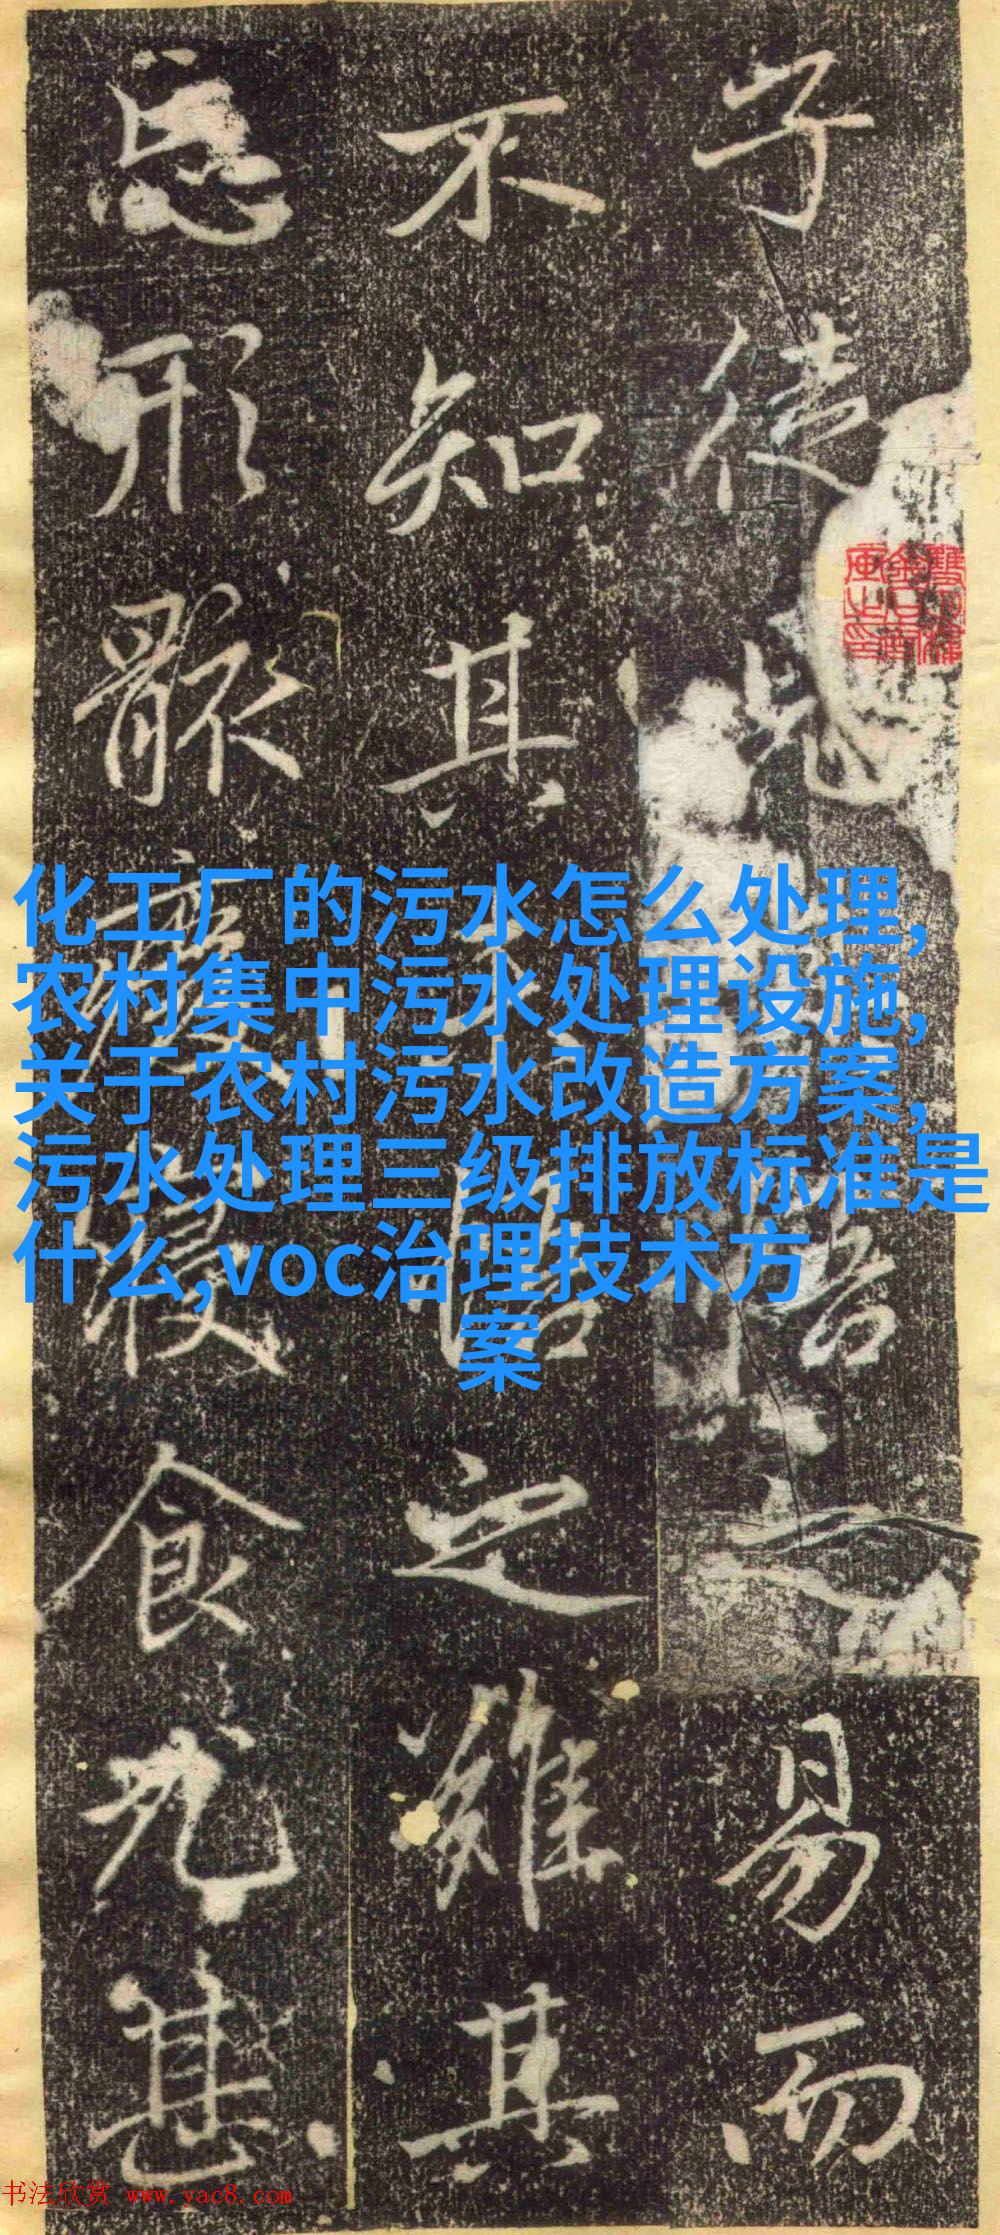 子徒見悟之易而
不知其悟之難其
忘形骸廢寢食尤甚
化工厂的污水怎么处理,
农村集中污水处理设施,
关于农村污水改造方案,
污水处理三级排放标准是
什么,voc治理技术方
案
书法欣赏 www.yac8.com